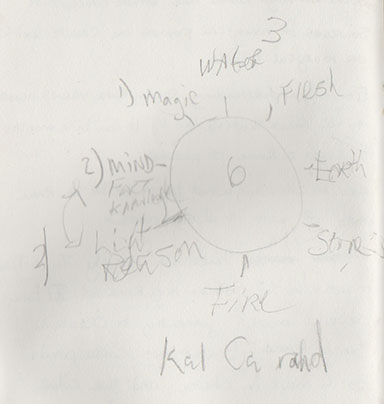 3
WATER
1) magic
FlESh
2) MIND
6
Earth
FACT
KNOWlEDGE
Light
REASON
Fire
Kal Ca rahd